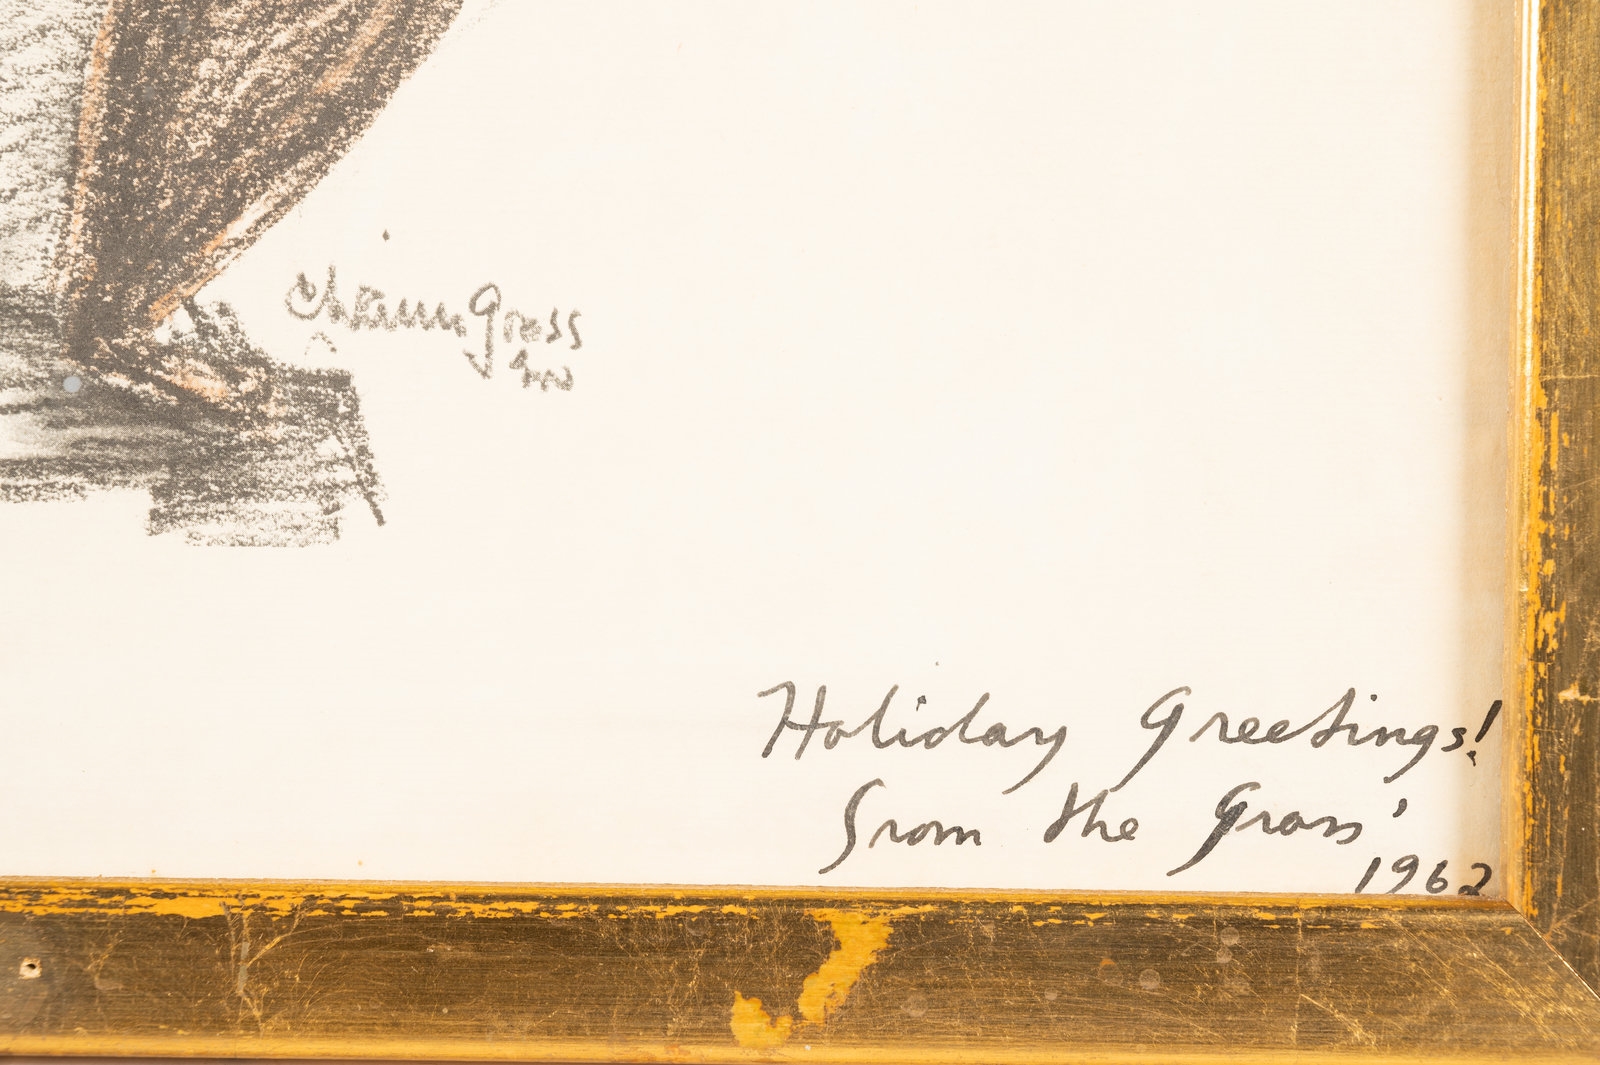 Chaim Gross
Holiday Greetings!
from the Gross'
1962